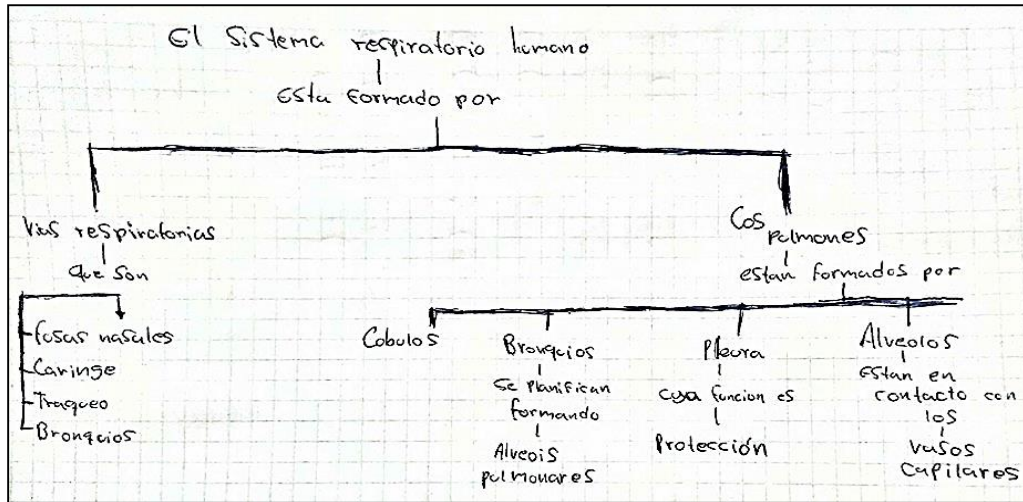 El Sistema respiratorio humano
Esta formado por
Vias respiratorias
que son
fosas nasales
Laringe
Traqueo
Bronquios
Los
pulmones
estan formados por
Lobulos
Bronquios
se planifican
formando
Alveois
pulmonares
Pleura
cuya funcion es
Protección
Alveolos
Estan en
contacto con
los
vasos
capilares